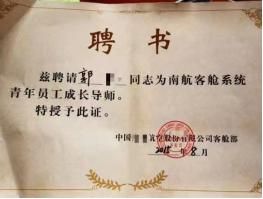 聘书
兹聘请郭 同志为南航客舱系统
青年员工成长导师。
特授予此证。
中国 航空股份有限公司客舱部
2015年8月